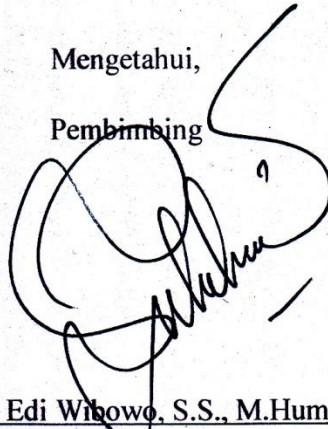 Mengetahui,
Pembimbing
Edi Wibowo, S.S., M.Hum